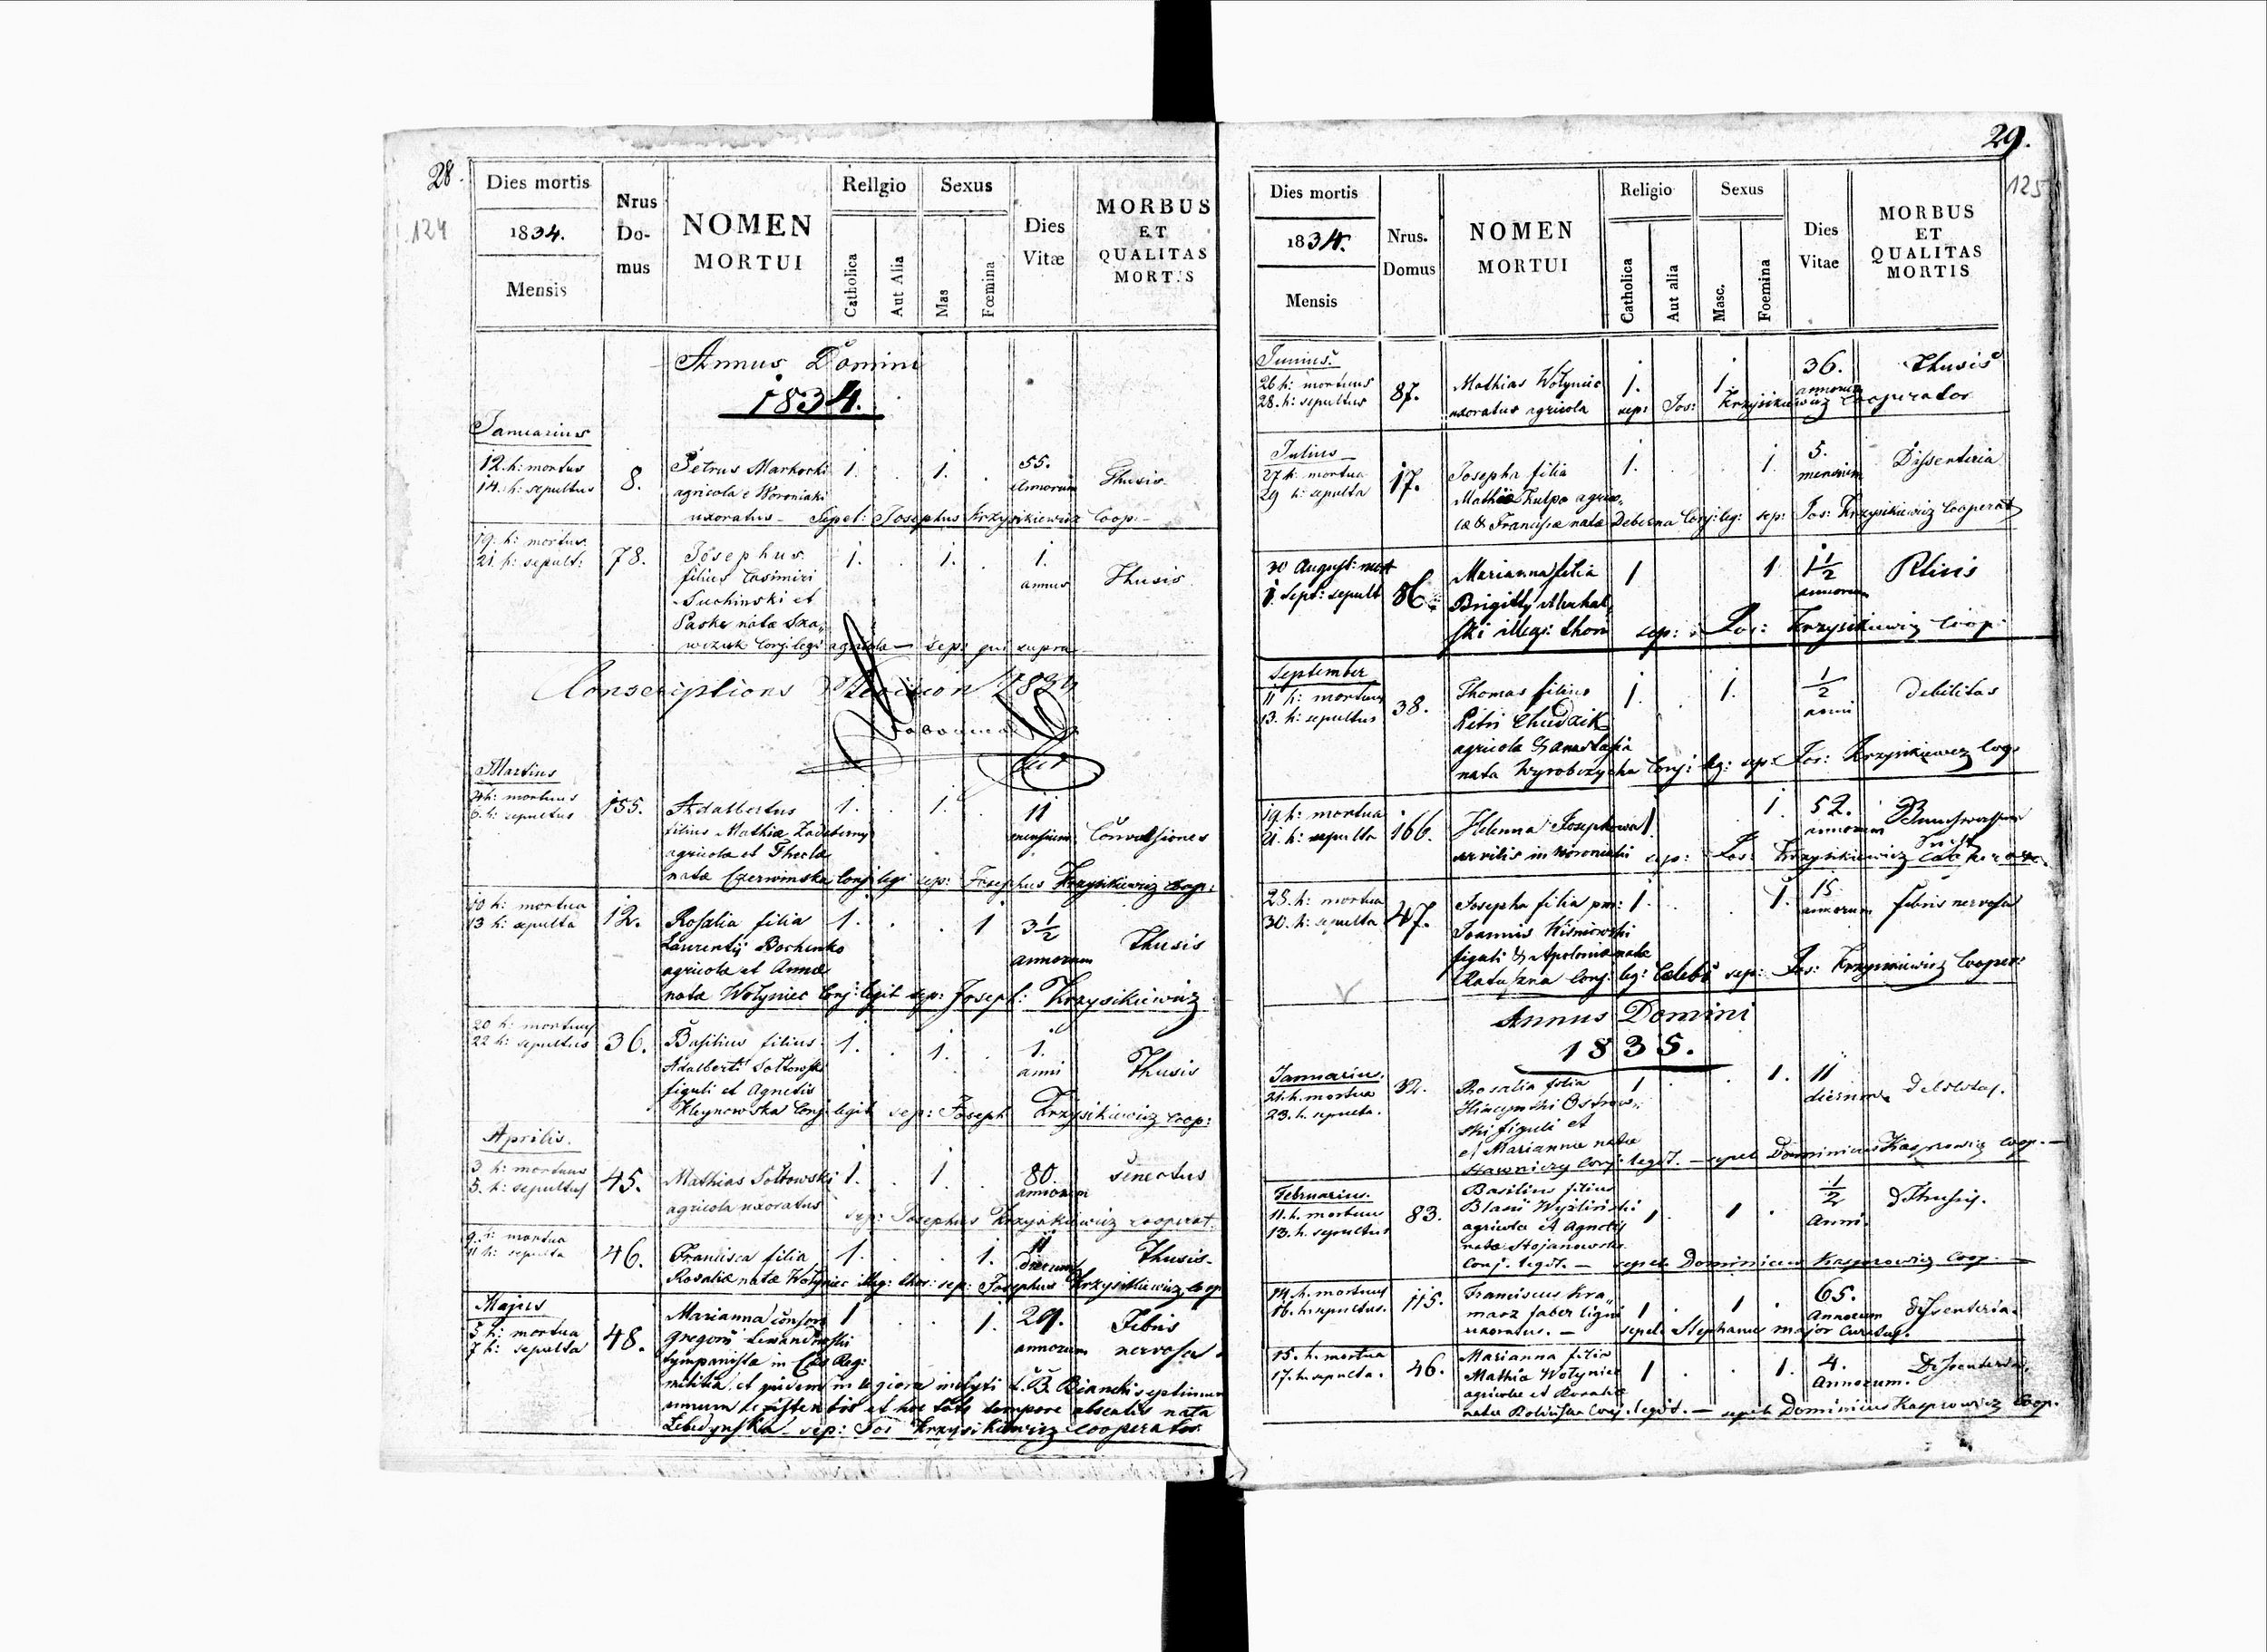 28.
124
Dies mortis
1834.
Mensis
Nrus
Do-
mus
NOMEN
MORTUI
Religio
Catholica
Aut Alia
Sexus
Mas
Fœmina
Dies
Vitæ
MORBUS
ET
QUALITAS
MORTIS
Annus Domini
1834.
Januarius
12. h: mortus
14. h: sepultus
8.
Petrus Markocki
agricola e Woroniaki
uxoratus - Sepel: Josephus Krzysikiewicz Coop:
1. 1.
55.
annorum
Thusis
19. h: mortus.
21. h: sepult:
78.
Josephus
filius Casimiri
Suchinski et
nata
Conj: legi: agricola - sep: qui supra
1. 1.
1.
annus
Thusis
Conscriptions Revision 1834
Martius
4 h: mortuus
6. h: sepultus
155.
Adalbertus
filius Mathiæ
agricolæ et Theclæ
natæ Czerwinska Conj: legi sep: Josephus Krzysikiewicz Coop:
1. 1.
11
mensium
Convulsiones
10 h: mortua
13 h: sepulta
12.
Rosalia filia
Laurentij Bochenko
agricolæ et Annæ
natæ Wołyniec Conj: legit sep: Joseph: Krzysikiewicz
1. 1
3 1/2
annorum
Thusis
20 h: mortuus
22 h: sepultus
36.
Basilius filius
Adalberti Sołtowski
figuli et Agnetis
Conj: legit sep: Joseph Krzysikiewicz Coop:
1. 1.
1.
anni
Thusis
Aprilis.
3 h: mortuus
5. h: sepultus
45.
Mathias Sołtowski
agricola uxoratus
sep: Josephus Krzysikiewicz cooperat:
1. 1.
80.
annorum
Senectus
9. h: mortua
11 h: sepulta
46.
Francisca filia
Rosaliæ natæ Wołyniec illeg: thor: sep: Josephus Krzysikiewicz Coop
1. 1.
11
dierum
Thusis.
Majus
5 h: mortua
7 h: sepulta
48.
Marianna consors
Gregorii
tympanistæ in Cæs Reg:
militia, et quidem in legione inclyti L. B. Bianchi
et hoc toto tempore absentis nata
sep: Jos Krzysikiewicz Cooperator
1 1.
29.
annorum
Febris
nervosa.
29.
125
Dies mortis
1834.
Mensis
Nrus.
Domus
NOMEN
MORTUI
Religio
Catholica
Aut alia
Sexus
Masc.
Foemina
Dies
Vitae
MORBUS
ET
QUALITAS
MORTIS
Junius
26 h: mortuus
28. h: sepultus
87.
Mathias Wołyniec
uxoratus agricola sep: Jos: Krzysikiewicz Cooperator
1. 1.
36.
annorum
Thusis
Julius
27 h: mortua
29 h: sepulta
17.
Josepha filia
Mathiæ Kulpa agrico-
læ & Franciscæ natæ Conj: leg: sep: Jos: Krzysikiewicz Cooperat
1. 1.
5.
mensium
Dissenteria
30 August: mort
1. Sept: sepult
86.
Marianna filia
Brigittÿ
illegi: thori sep: Jos: Krzysikiewicz Coop:
1 1
1 1/2
annorum
September
11 h: mortuus
13. h: sepultus
38.
Thomas filius
Petri Chudzik
agricola & Anastasia
nata Conj: leg: sep: Jos: Krzysikiewicz Coop
1. 1.
1/2
anni
debilitas
19. h: mortua
21. h: sepulta
166.
Helenna Josephowa
servilis in Woroniaki sep: Jos: Krzysikiewicz Cooperator.
1. 1.
52.
annorum
28. h: mortua
30. h: sepulta
47.
Josepha filia
Joannis Wisniowski
figuli & Apoloniæ natæ
Conj: leg: Cælebs sep: Jos: Krzysikiewicz Cooper:
1. 1.
15
annorum
febris nervosa
Annus Domini
1835.
Januarius.
21. h. mortua
23. h. sepulta.
32.
Rosalia filia
Ostrow-
ski figuli et
et Mariannæ natæ
Conj: legit. - sepel. Dominicus Kasprowicz Coop. -
1 1.
11
dierum
debilitas.
Februarius.
11. h. mortuus
13. h. sepultus
83.
Basilius filius
Blasii
agricolæ et Agnetis
natæ Stojanowska
Conj. legit. - sepel. Dominicus Kasprowicz Coop. -
1 1
1/2
Anni.
14. h. mortuus
16. h. sepultus.
115.
Franciscus Kra-
marz faber ligni
uxoratus. - sepel. Stephanus major Curatus.
1 1
65.
Annorum
dissenteria.
15. h. mortua
17. h. sepulta.
46.
Marianna filia
Mathiæ Wołyniec
agricolæ et Rosaliæ
natæ Conj. legit. - sepel. Dominicus Kasprowicz Coop.
1 1.
4.
Annorum.
Dissenteria.